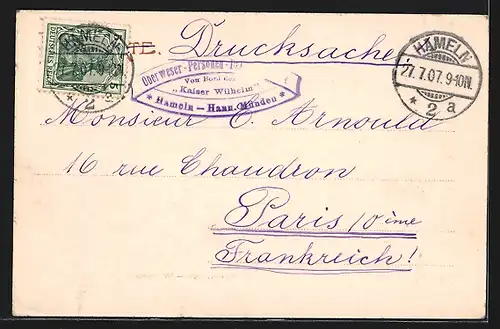 TE. Drucksache
HAMELN
27.7.07.9-10N.
* 2 a
HAMELN
* 2
5
Oberweser-Personen-
Von Bord des
„Kaiser Wilhelm"
* Hameln — Hann. Münden *
Monsieur C. Arnould
16 rue Chaudron
Paris 10 ième
Frankreich!